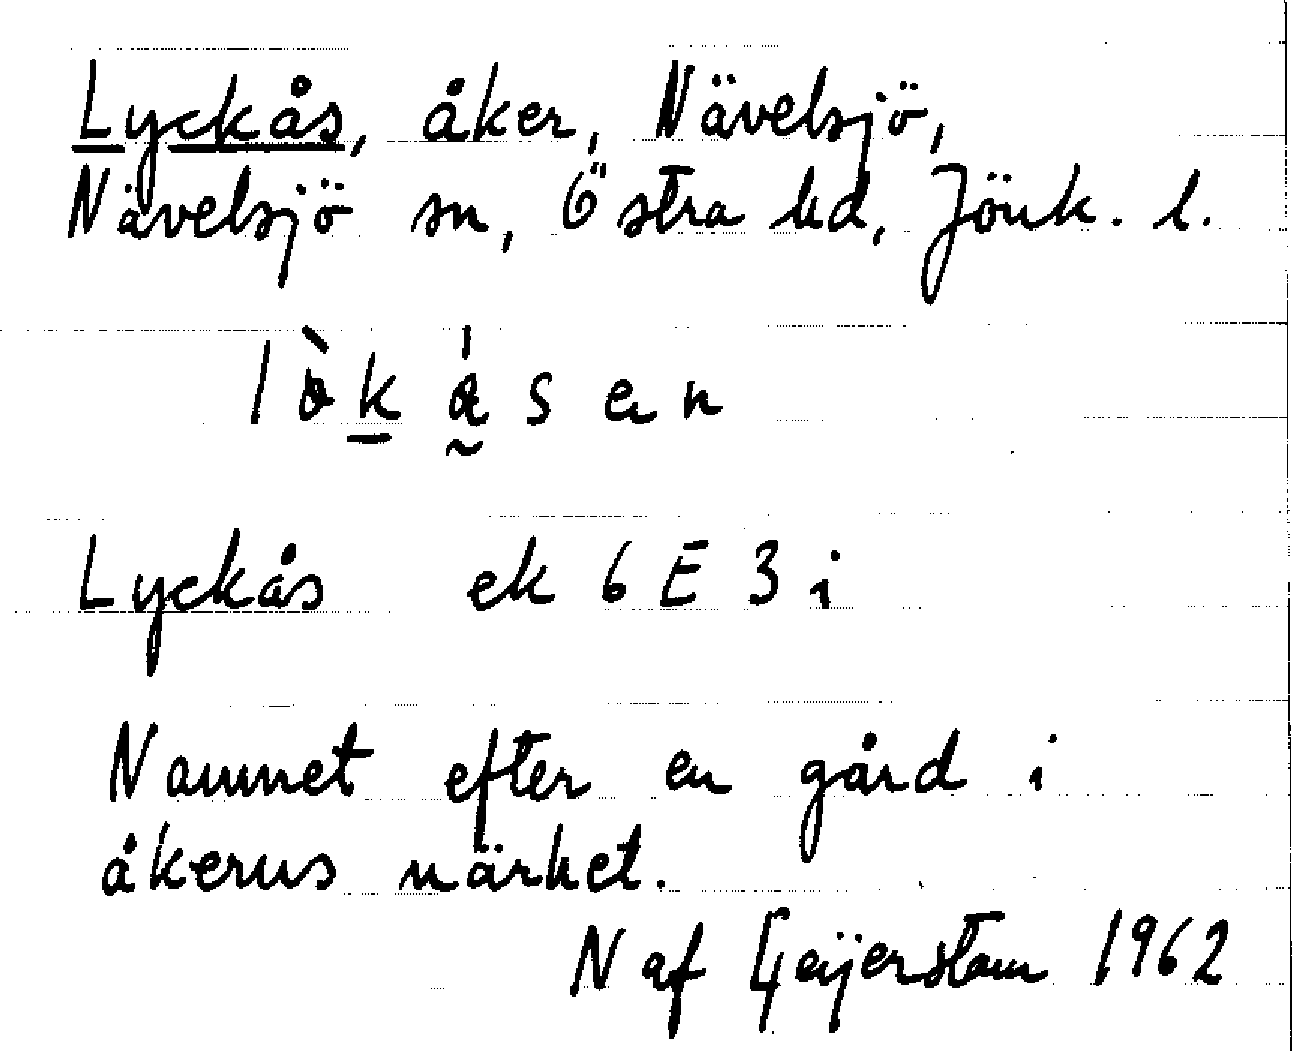 Lyckås, åker, Nävelsjö,
Nävelsjö sn, Östra hd, Jönk. l.
Lyckås ek 6 E 3 i
Namnet efter en gård i
åkerns närhet.
N af Geijerstam 1962